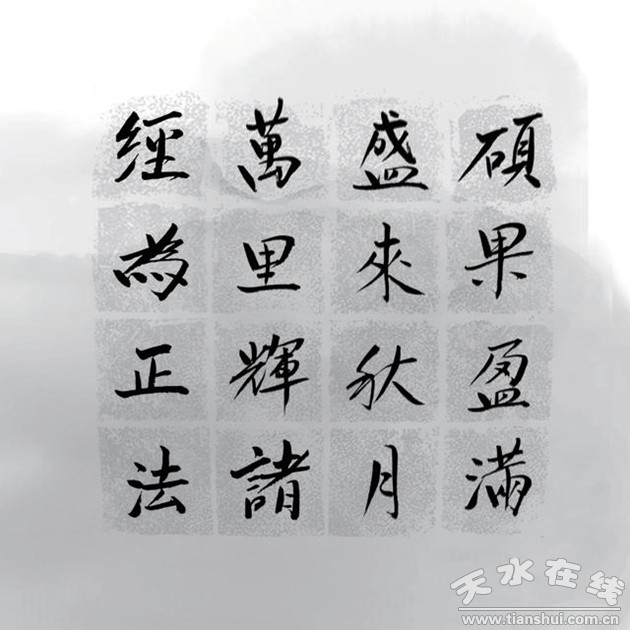 硕果盈滿
盛來秋月
萬里輝諸
經為正法
天水在线
www.tianshui.com.cn